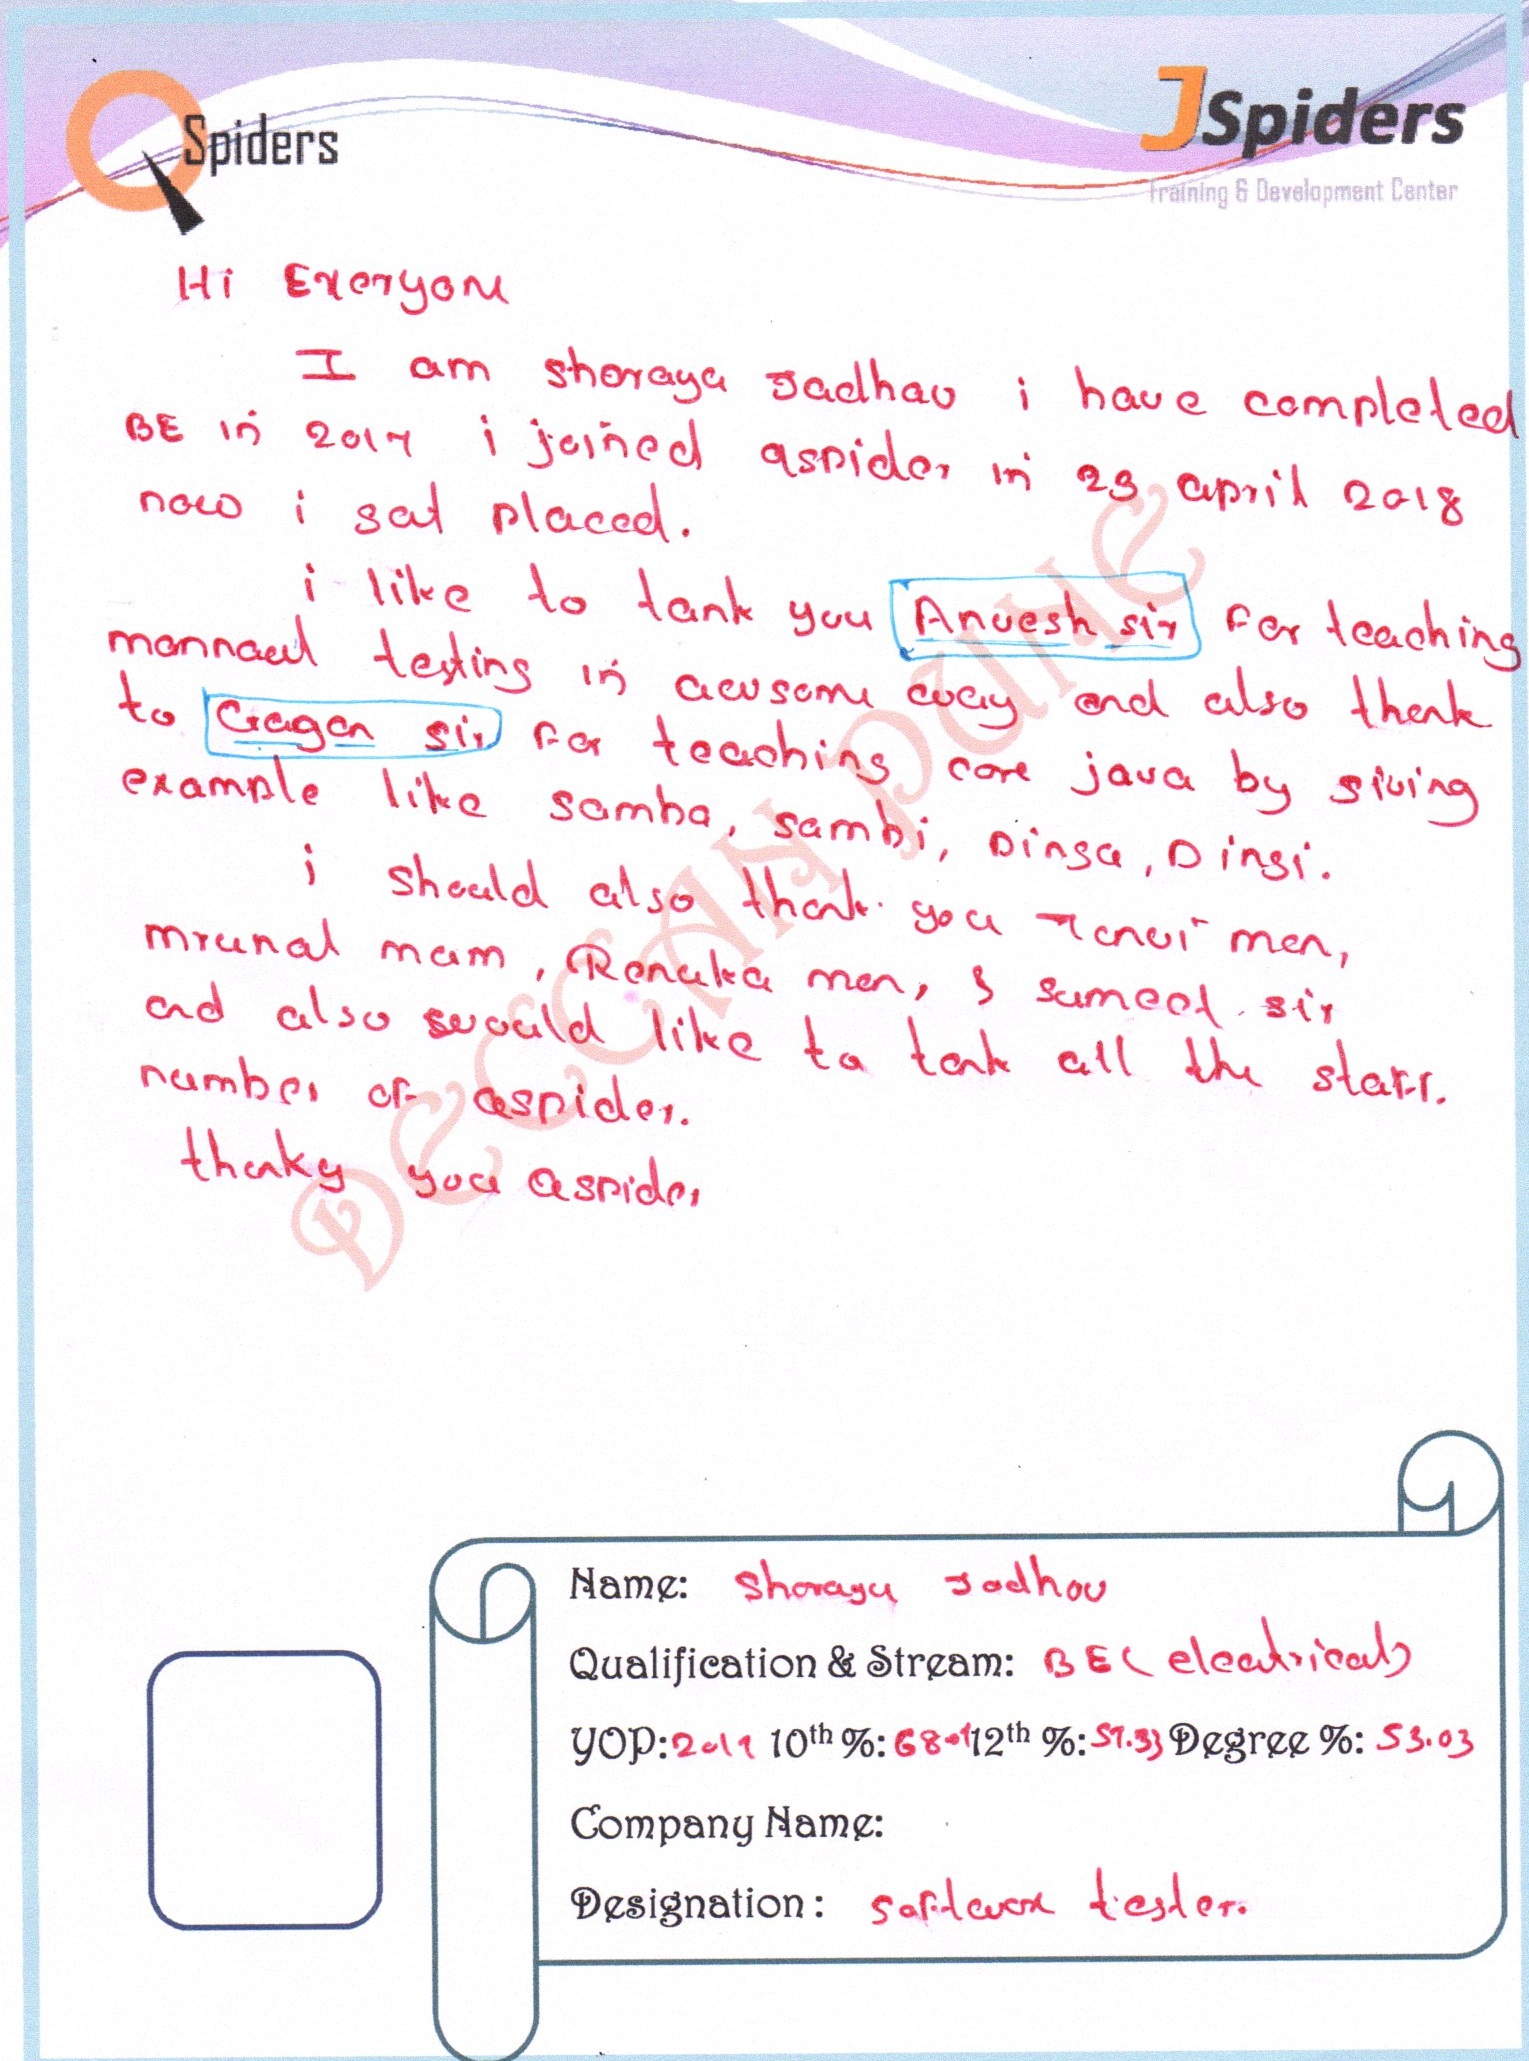 QSpiders
JSpiders
Training & Development Center
Hi Everyone
I am shoraya Jadhav i have completed
BE in 2017 i joined qspider in 23 april 2018
now i gat placed.
i like to tank you Anvesh sir For teaching
mannaul testing in awsome way and also thank
to Gagan sir For teaching core java by giving
example like samba, sambi, Dinga, Dingi.
i should also thank you Tanvi man,
mrunal mam, Renuka man, & sumeet sir
and also would like to tank all the staff.
number of qspider.
thanky you qspider
DECCAN PUNE
Name: Shoraya Jadhav
Qualification & Stream: BE (electrical)
YOP: 2017 10th %: 68. 12th %: 57.33 Degree %: 53.03
Company Name:
Designation: Software tester.